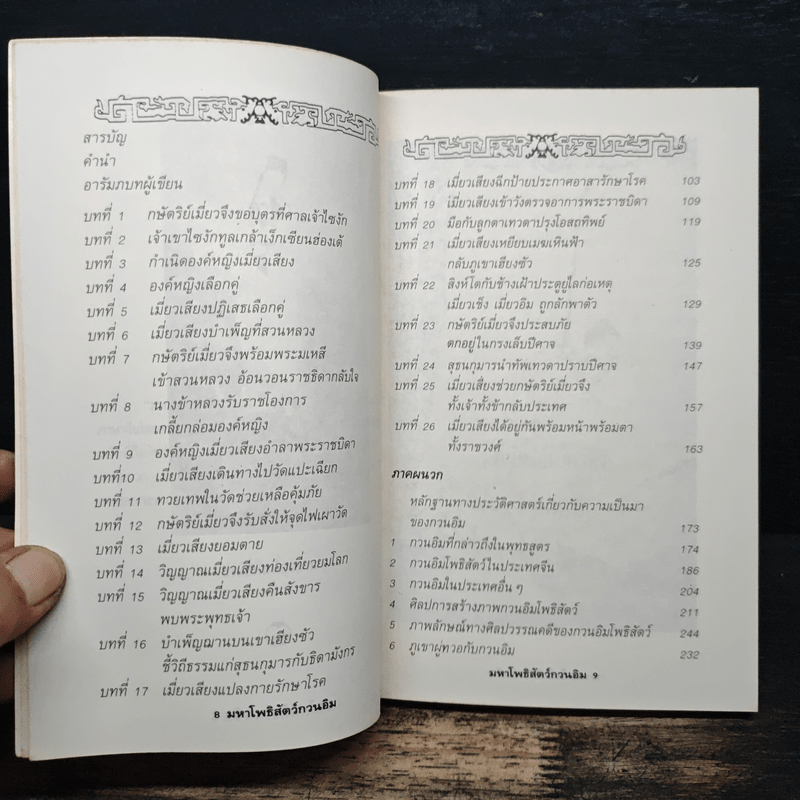 สารบัญ
คำนำ
อารัมภบทผู้เขียน
บทที่ 1 กษัตริย์เมี่ยวจึงขอบุตรที่ศาลเจ้าไซงัก
บทที่ 2 เจ้าเขาไซงักทูลเกล้าเง็กเซียนฮ่องเต้
บทที่ 3 กำเนิดองค์หญิงเมี่ยวเสียง
บทที่ 4 องค์หญิงเลือกคู่
บทที่ 5 เมี่ยวเสียงปฏิเสธเลือกคู่
บทที่ 6 เมี่ยวเสียงบำเพ็ญที่สวนหลวง
บทที่ 7 กษัตริย์เมี่ยวจึงพร้อมพระมเหสี
เข้าสวนหลวง อ้อนวอนราชธิดากลับใจ
บทที่ 8 นางข้าหลวงรับราชโองการ
เกลี้ยกล่อมองค์หญิง
บทที่ 9 องค์หญิงเมี่ยวเสียงอำลาพระราชบิดา
บทที่10 เมี่ยวเสียงเดินทางไปวัดแปะเฉียก
บทที่ 11 ทวยเทพในวัดช่วยเหลือคุ้มภัย
บทที่ 12 กษัตริย์เมี่ยวจึงรับสั่งให้จุดไฟเผาวัด
บทที่ 13 เมี่ยวเสียงยอมตาย
บทที่ 14 วิญญาณเมี่ยวเสียงท่องเที่ยวยมโลก
บทที่ 15 วิญญาณเมี่ยวเสียงคืนสังขาร
พบพระพุทธเจ้า
บทที่ 16 บำเพ็ญฌานบนเขาเฮียงซัว
ชี้วิถีธรรมแก่สุธนกุมารกับธิดามังกร
บทที่ 17 เมี่ยวเสียงแปลงกายรักษาโรค
8 มหาโพธิสัตว์กวนอิม
บทที่ 18 เมี่ยวเสียงฉีกป้ายประกาศอาสารักษาโรค 103
บทที่ 19 เมี่ยวเสียงเข้าวังตรวจอาการพระราชบิดา 109
บทที่ 20 มือกับลูกตาเทวดาปรุงโอสถทิพย์ 119
บทที่ 21 เมี่ยวเสียงเหยียบเมฆเหินฟ้า
กลับภูเขาเฮียงซัว 125
บทที่ 22 สิงห์โตกับช้างเฝ้าประตูยูไลก่อเหตุ
เมี่ยวเช็ง เมี่ยวอิม ถูกลักพาตัว 129
บทที่ 23 กษัตริย์เมี่ยวจึงประสบภัย
ตกอยู่ในกรงเล็บปีศาจ 139
บทที่ 24 สุธนกุมารนำทัพเทวดาปราบปีศาจ 147
บทที่ 25 เมี่ยวเสียงช่วยกษัตริย์เมี่ยวจึง
ทั้งเจ้าทั้งข้ากลับประเทศ 157
บทที่ 26 เมี่ยวเสียงได้อยู่กันพร้อมหน้าพร้อมตา
ทั้งราชวงศ์ 163
ภาคผนวก
หลักฐานทางประวัติศาสตร์เกี่ยวกับความเป็นมา
ของกวนอิม 173
1 กวนอิมที่กล่าวถึงในพุทธสูตร 174
2 กวนอิมโพธิสัตว์ในประเทศจีน 186
3 กวนอิมในประเทศอื่น ๆ 204
4 ศิลปการสร้างภาพกวนอิมโพธิสัตว์ 211
5 ภาพลักษณ์ทางศิลปวรรณคดีของกวนอิมโพธิสัตว์ 244
6 ภูเขาผู่ทวอกับกวนอิม 232
มหาโพธิสัตว์กวนอิม 9